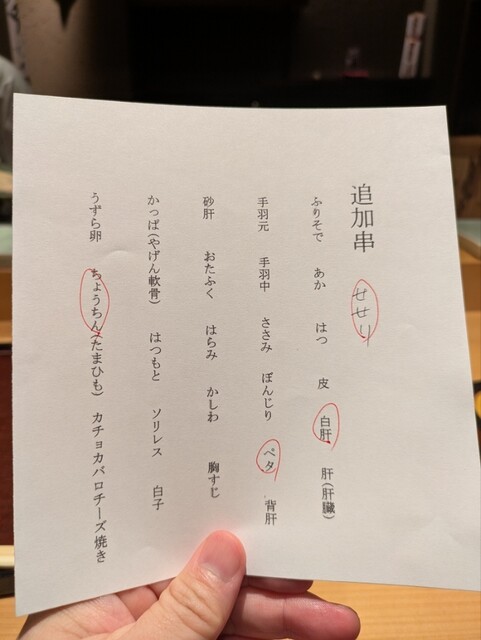 追加串 せせり
ふりそで あか はつ 皮 白肝 肝(肝臓)
手羽元 手羽中 ささみ ぼんじり ペタ 背肝
砂肝 おたふく はらみ かしわ 胸すじ
かっぱ(やげん軟骨) はつもと ソリレス 白子
うずら卵 ちょうちん(たまひも) カチョカバロチーズ焼き